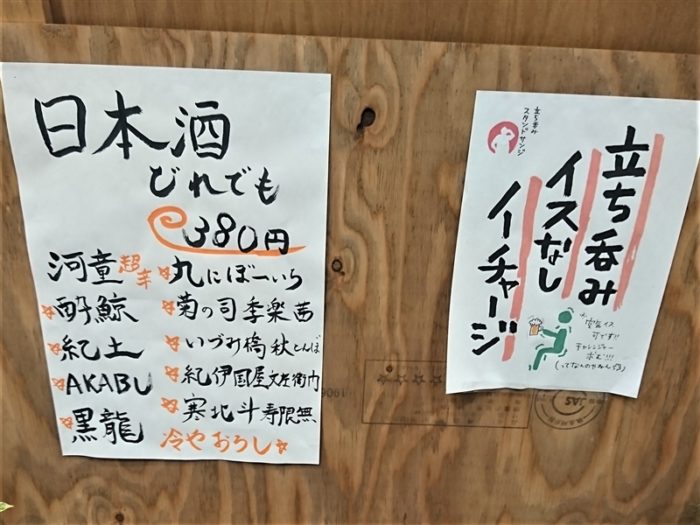 日本酒
どれでも
380円
河童 超辛
酔鯨
紀土
AKABU
黒龍
丸にぼーいち
菊の司 季楽茜
いづみ橋 秋とんぼ
紀伊国屋文左衛門
寒北斗 寿限無
冷やおろし
立ち呑み
スタンドサンジ
立ち呑み
イスなし
ノーチャージ
空気イス
可です!!
チャレンジャー
求む!!!
JAS